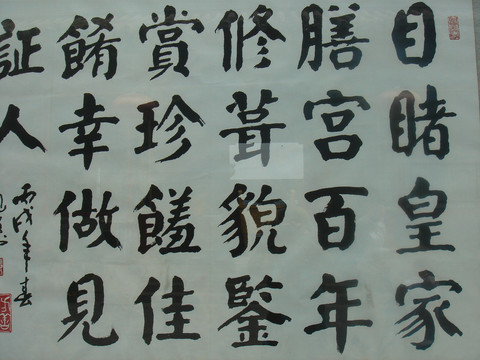 目睹皇家
膳宫百年
修葺貌鑒
賞珍饈佳
餚幸做見
証人
丙戌年春